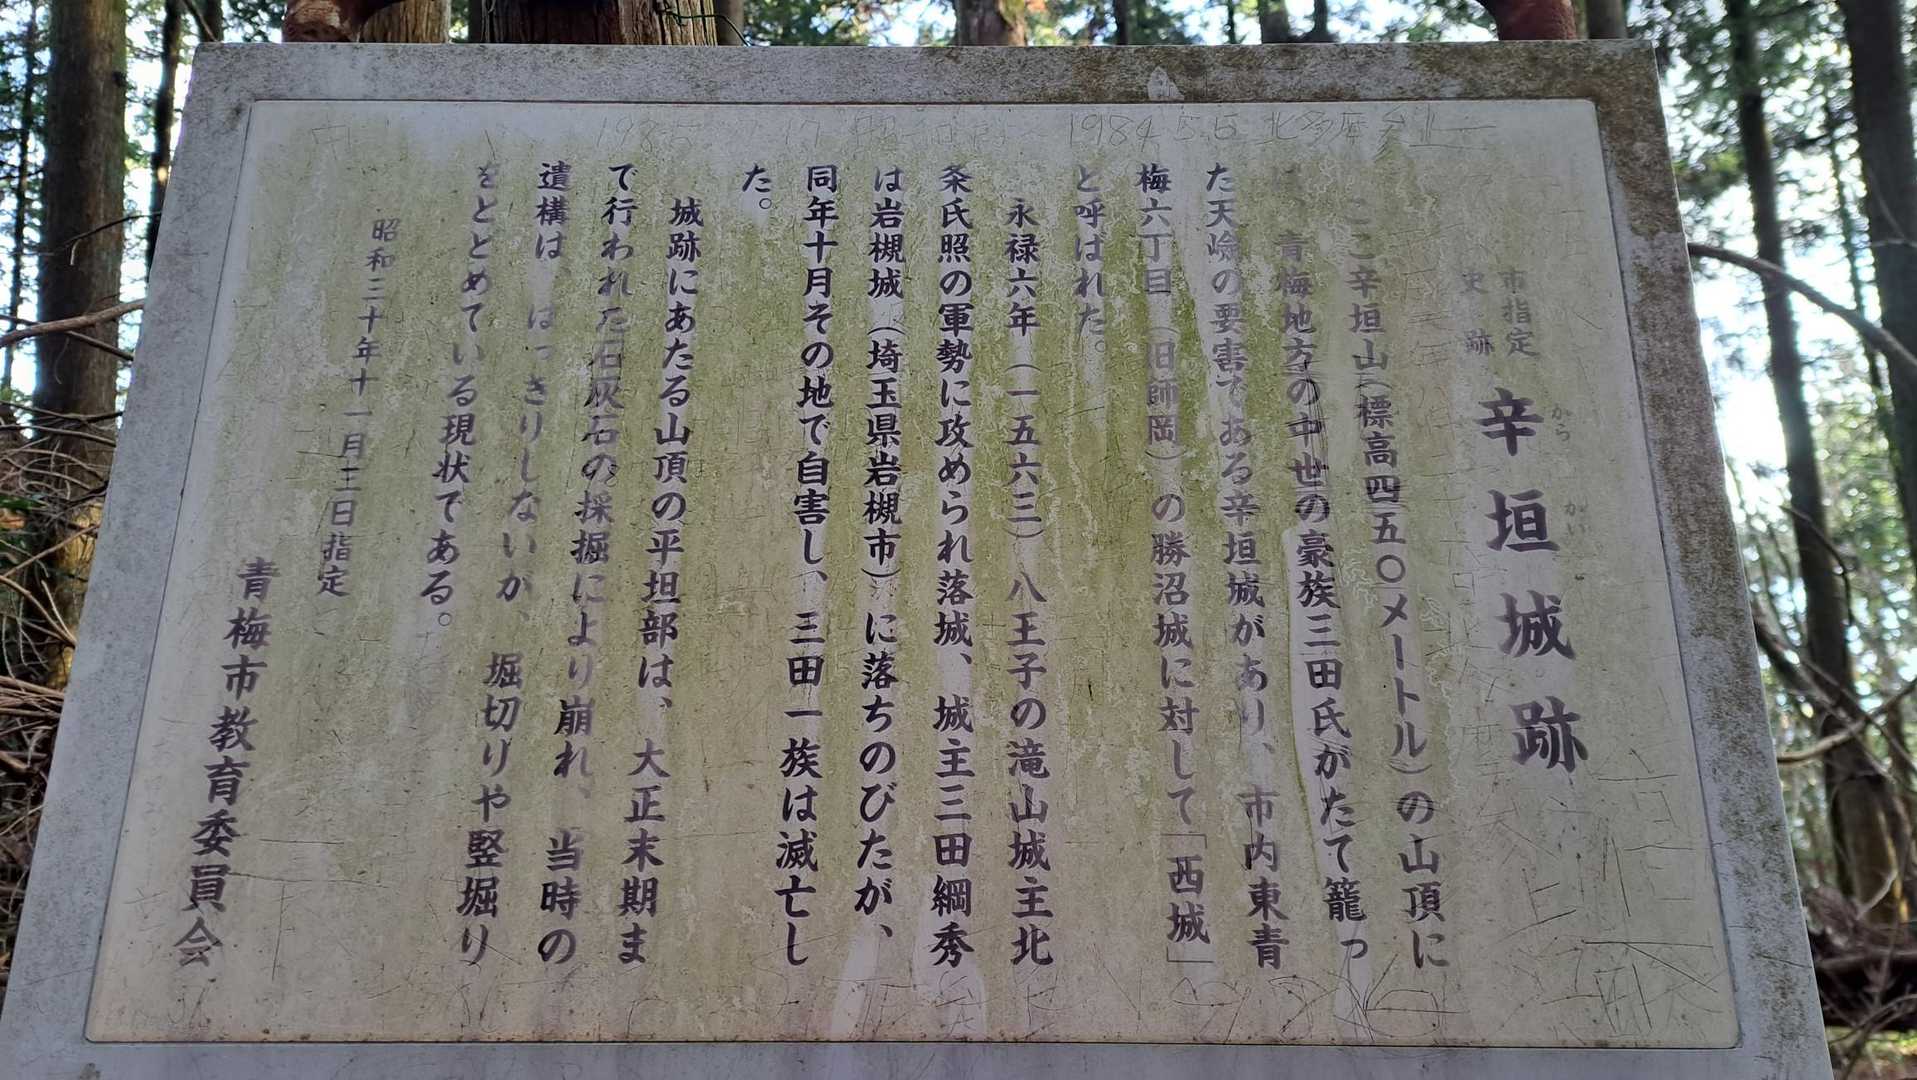 市指定
史跡
辛垣城跡
からかい
ここ辛垣山(標高四五〇メートル)の山頂に
は、青梅地方の中世の豪族三田氏がたて籠っ
た天嶮の要害である辛垣城があり、市内東青
梅六丁目(旧師岡)の勝沼城に対して「西城」
と呼ばれた。
永禄六年(一五六三)八王子の滝山城主北
条氏照の軍勢に攻められ落城、城主三田綱秀
は岩槻城(埼玉県岩槻市)に落ちのびたが、
同年十月その地で自害し、三田一族は滅亡し
た。
城跡にあたる山頂の平坦部は、大正末期ま
で行われた石灰石の採掘により崩れ、当時の
遺構は、はっきりしないが、堀切りや竪堀り
をとどめている現状である。
昭和三十年十一月三日指定
青梅市教育委員会
1984 5.5